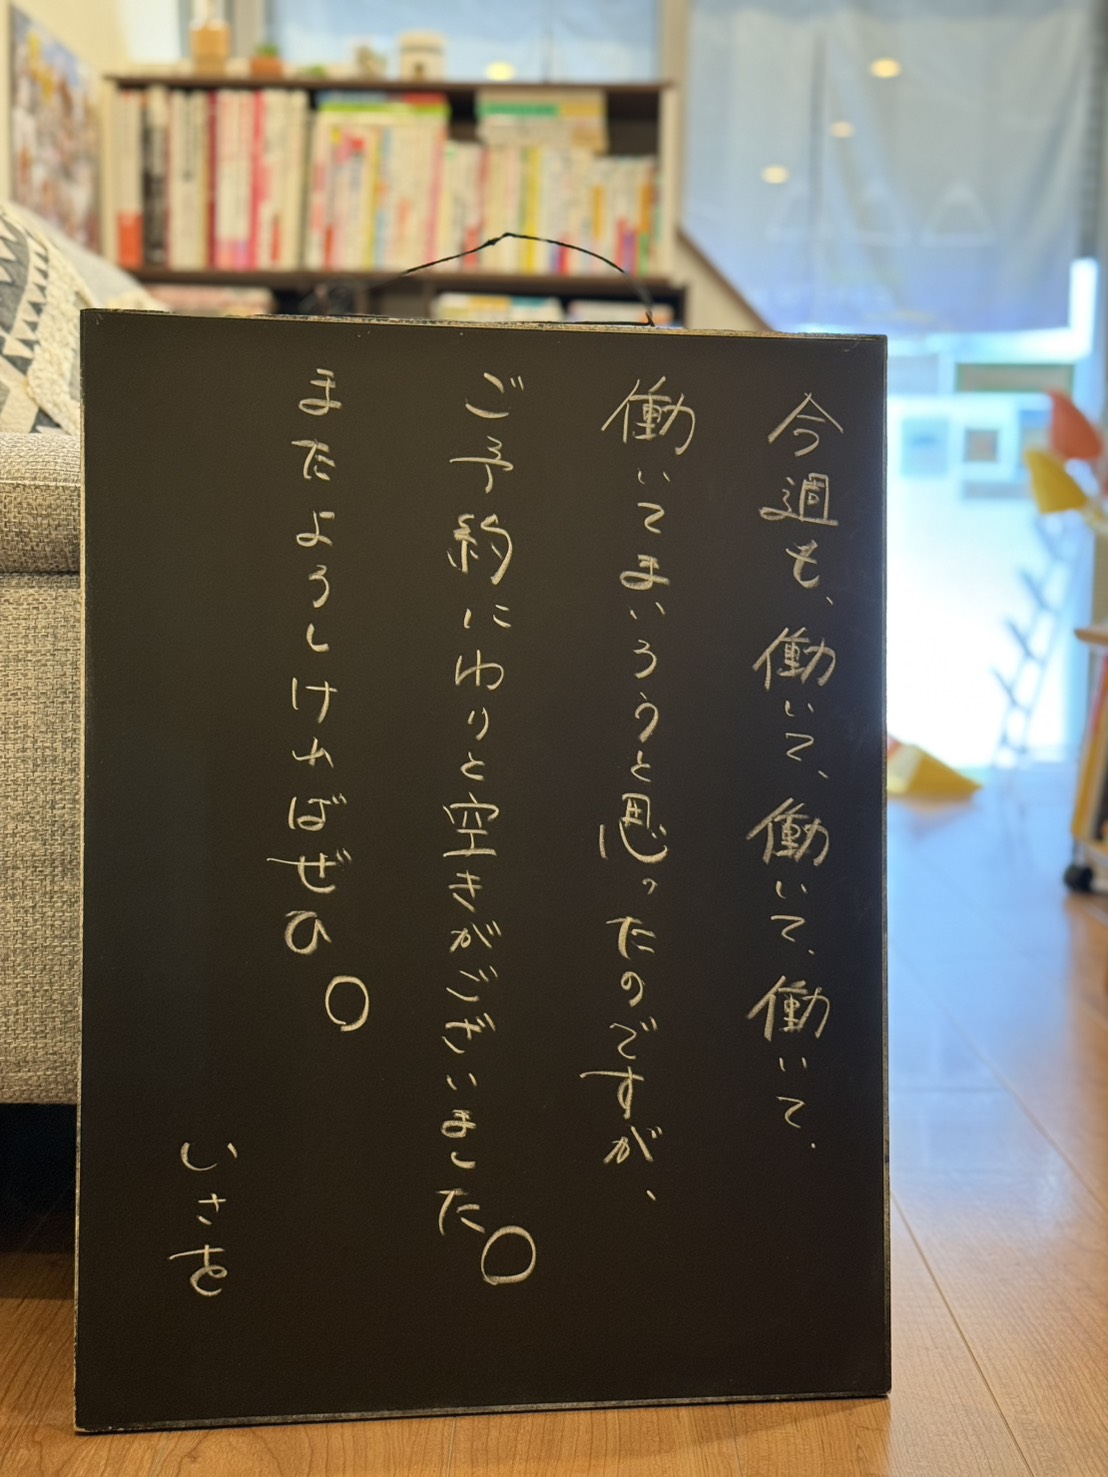 今週も、働いて、働いて、働いて、
働いてまいろうと思ったのですが、
ご予約にわりと空きがございました。
またよろしければぜひ。
いさを